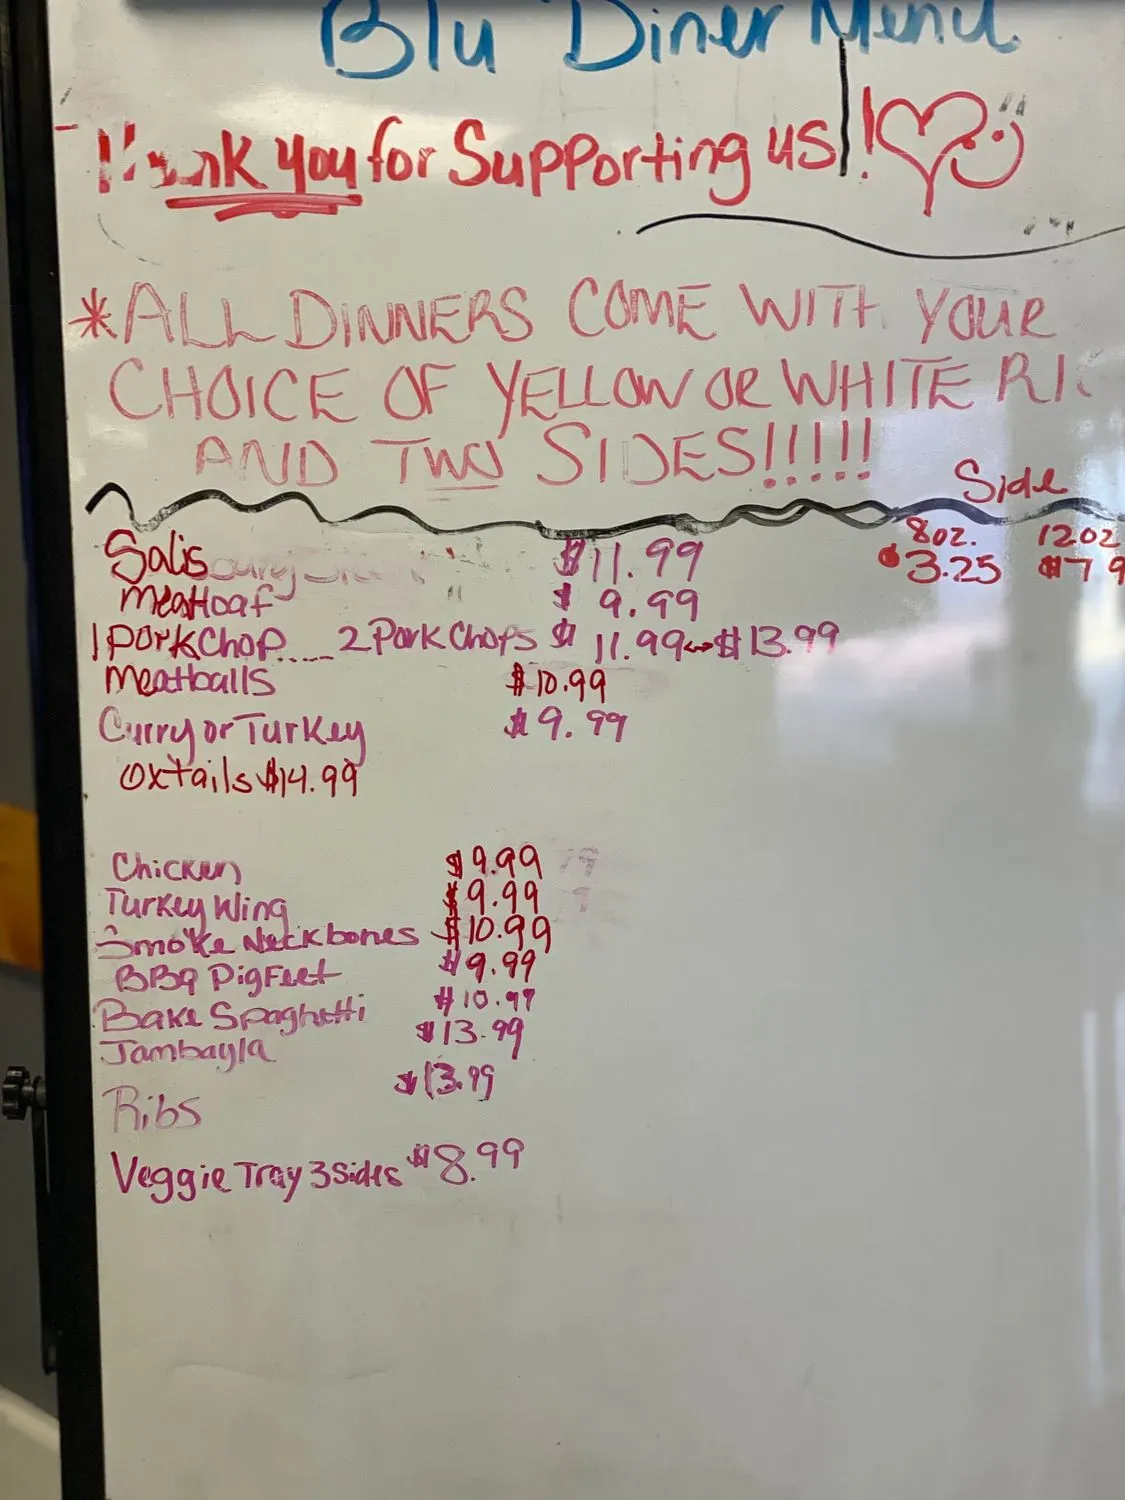 Blu Diner Menu
Thank you for Supporting us!
*ALL DINNERS COME WITH YOUR
CHOICE OF YELLOW OR WHITE RIC
AND TWO SIDES!!!!!
Side
8oz. 12oz
$3.25 $7.9
Salisbury $11.99
meatloaf $9.99
1 Pork Chop.....__ 2 Pork Chops $11.99↔$13.99
meatballs $10.99
Curry or Turkey $9.99
oxtails $14.99
Chicken $9.99
Turkey Wing $9.99
Smoke Neckbones $10.99
BBq Pig Feet $9.99
Bake Spaghetti $10.99
Jambayla $13.99
Ribs $13.99
Veggie Tray 3 sides $8.99